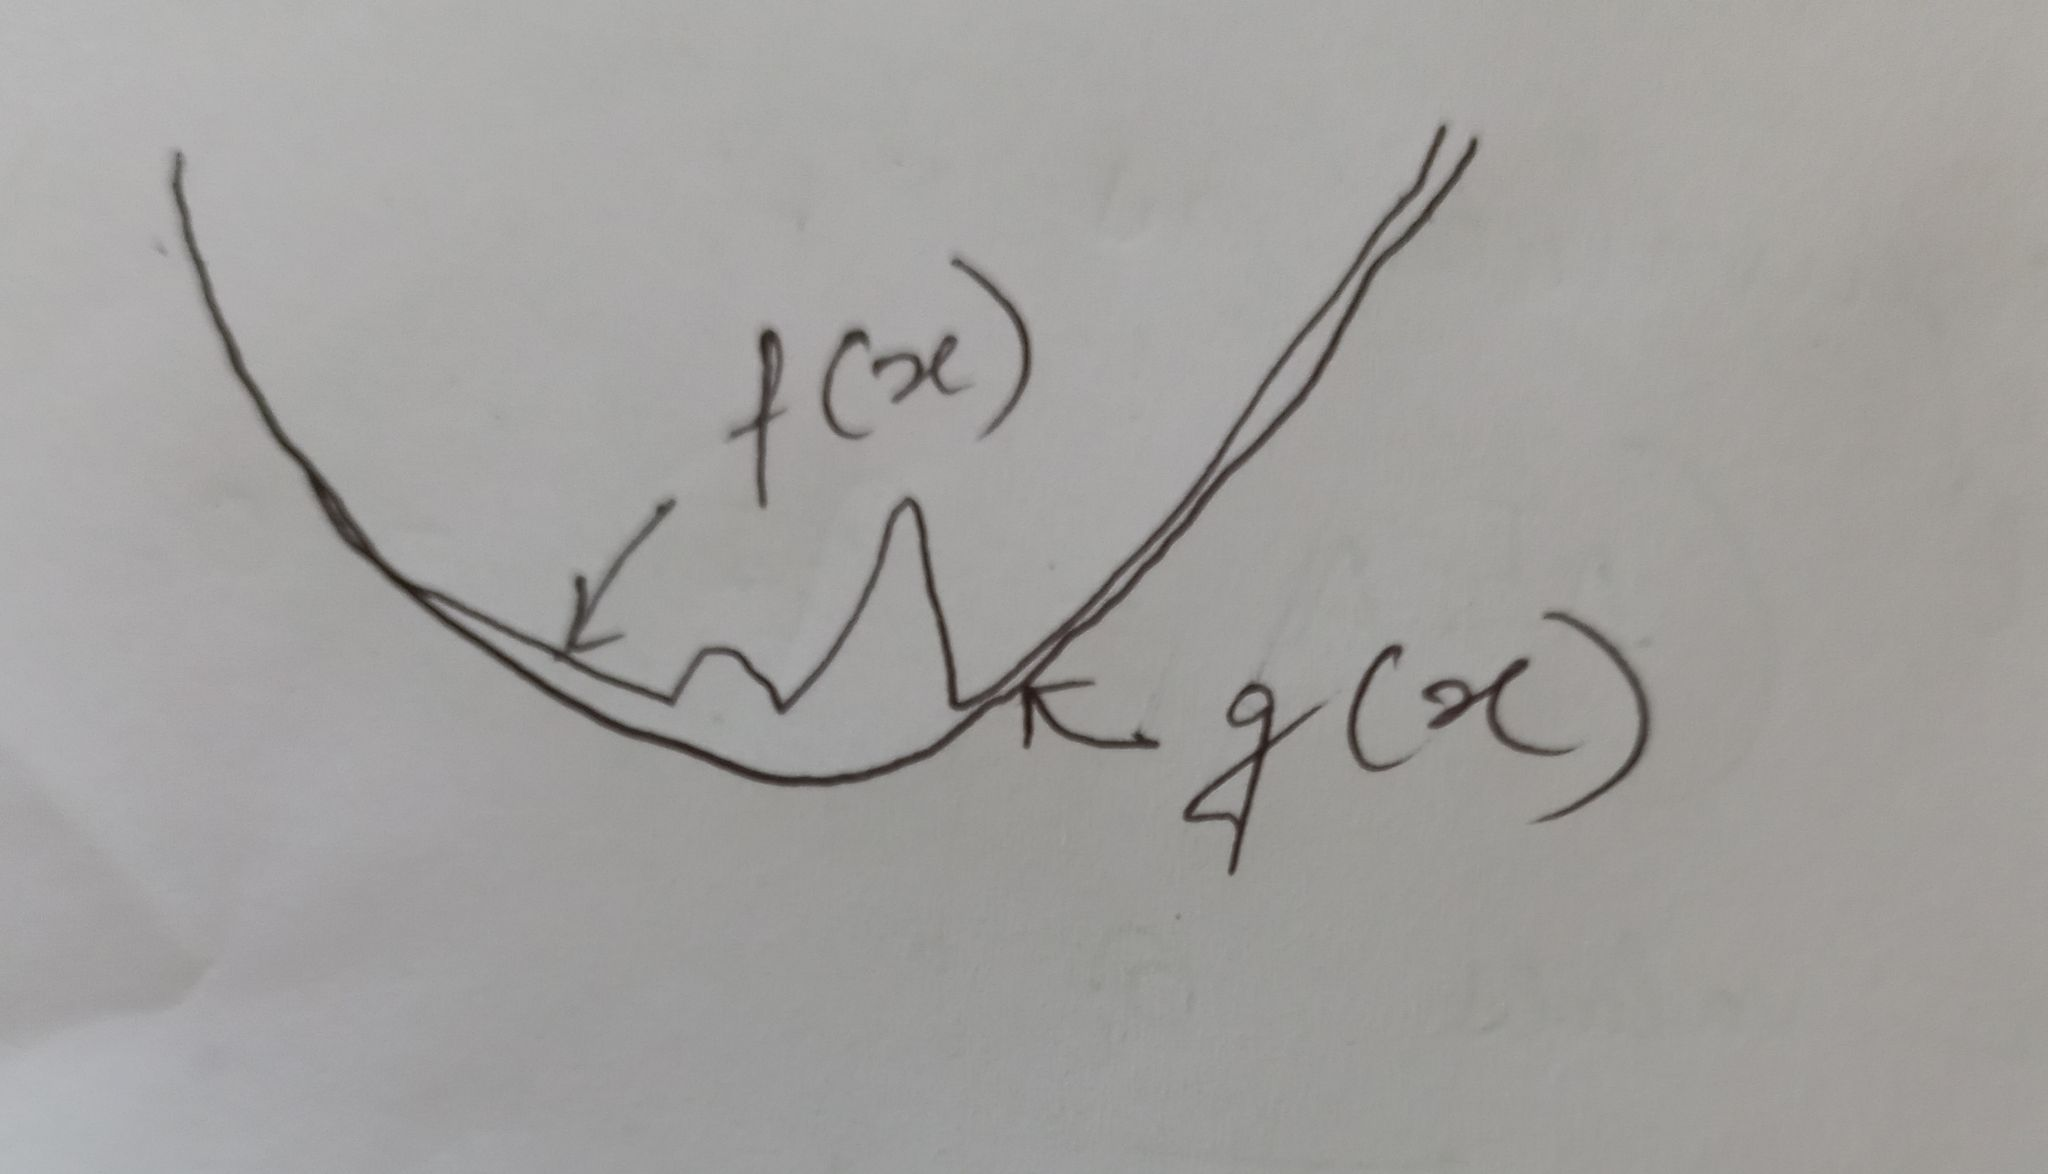 f(x)
g(x)